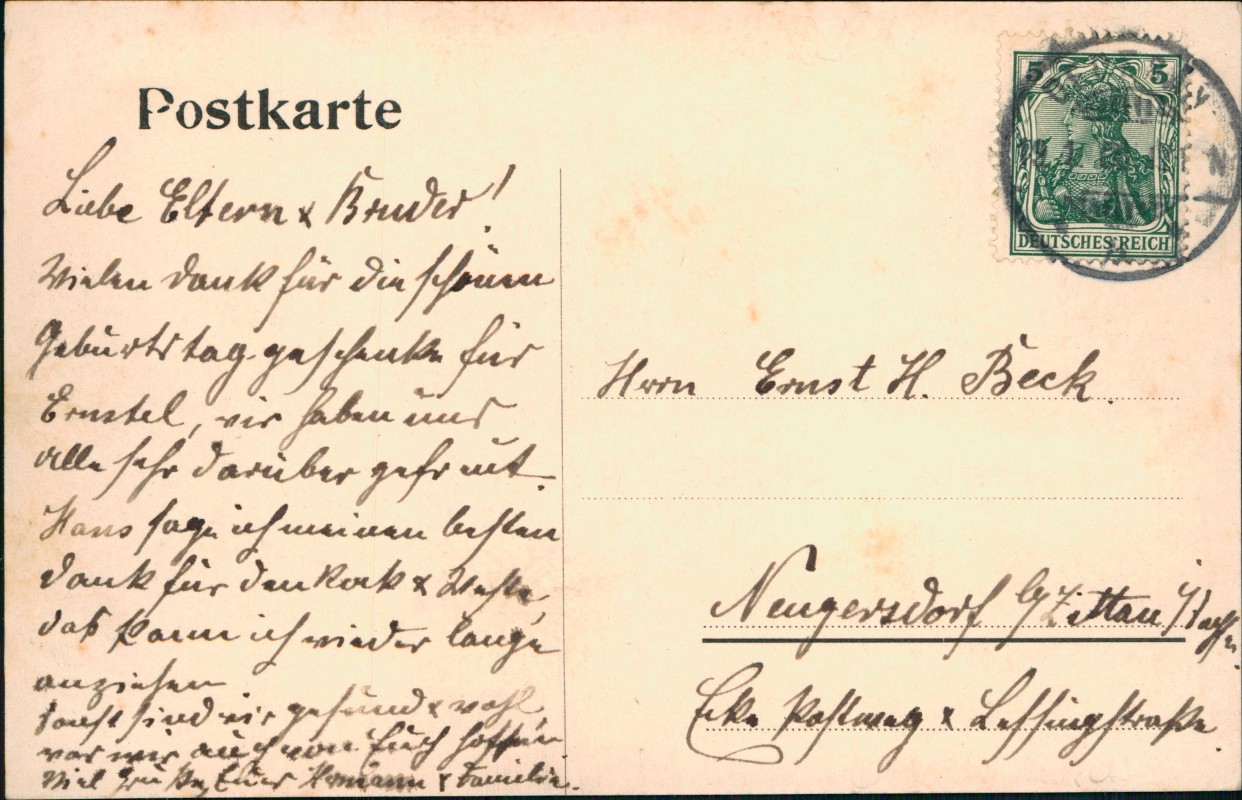 Postkarte
Liebe Eltern & Bruder!
Vielen Dank für die schönen
Geburtstagsgeschenke für
Ernstel, wir haben uns
alle sehr darüber gefreut.
Hans sage ich meinen besten
Dank für den Rock & Weste,
das kann ich wieder lange
anziehen
sonst sind wir gesund & wohl,
was wir auch von Euch hoffen
Viel Grüße, Euer Hermann & Familie.
5 5
DEUTSCHES REICH
Herrn Ernst H. Beck.
Neugersdorf b/Zittau i/Sachsen
Ecke Postweg & Lessingstraße